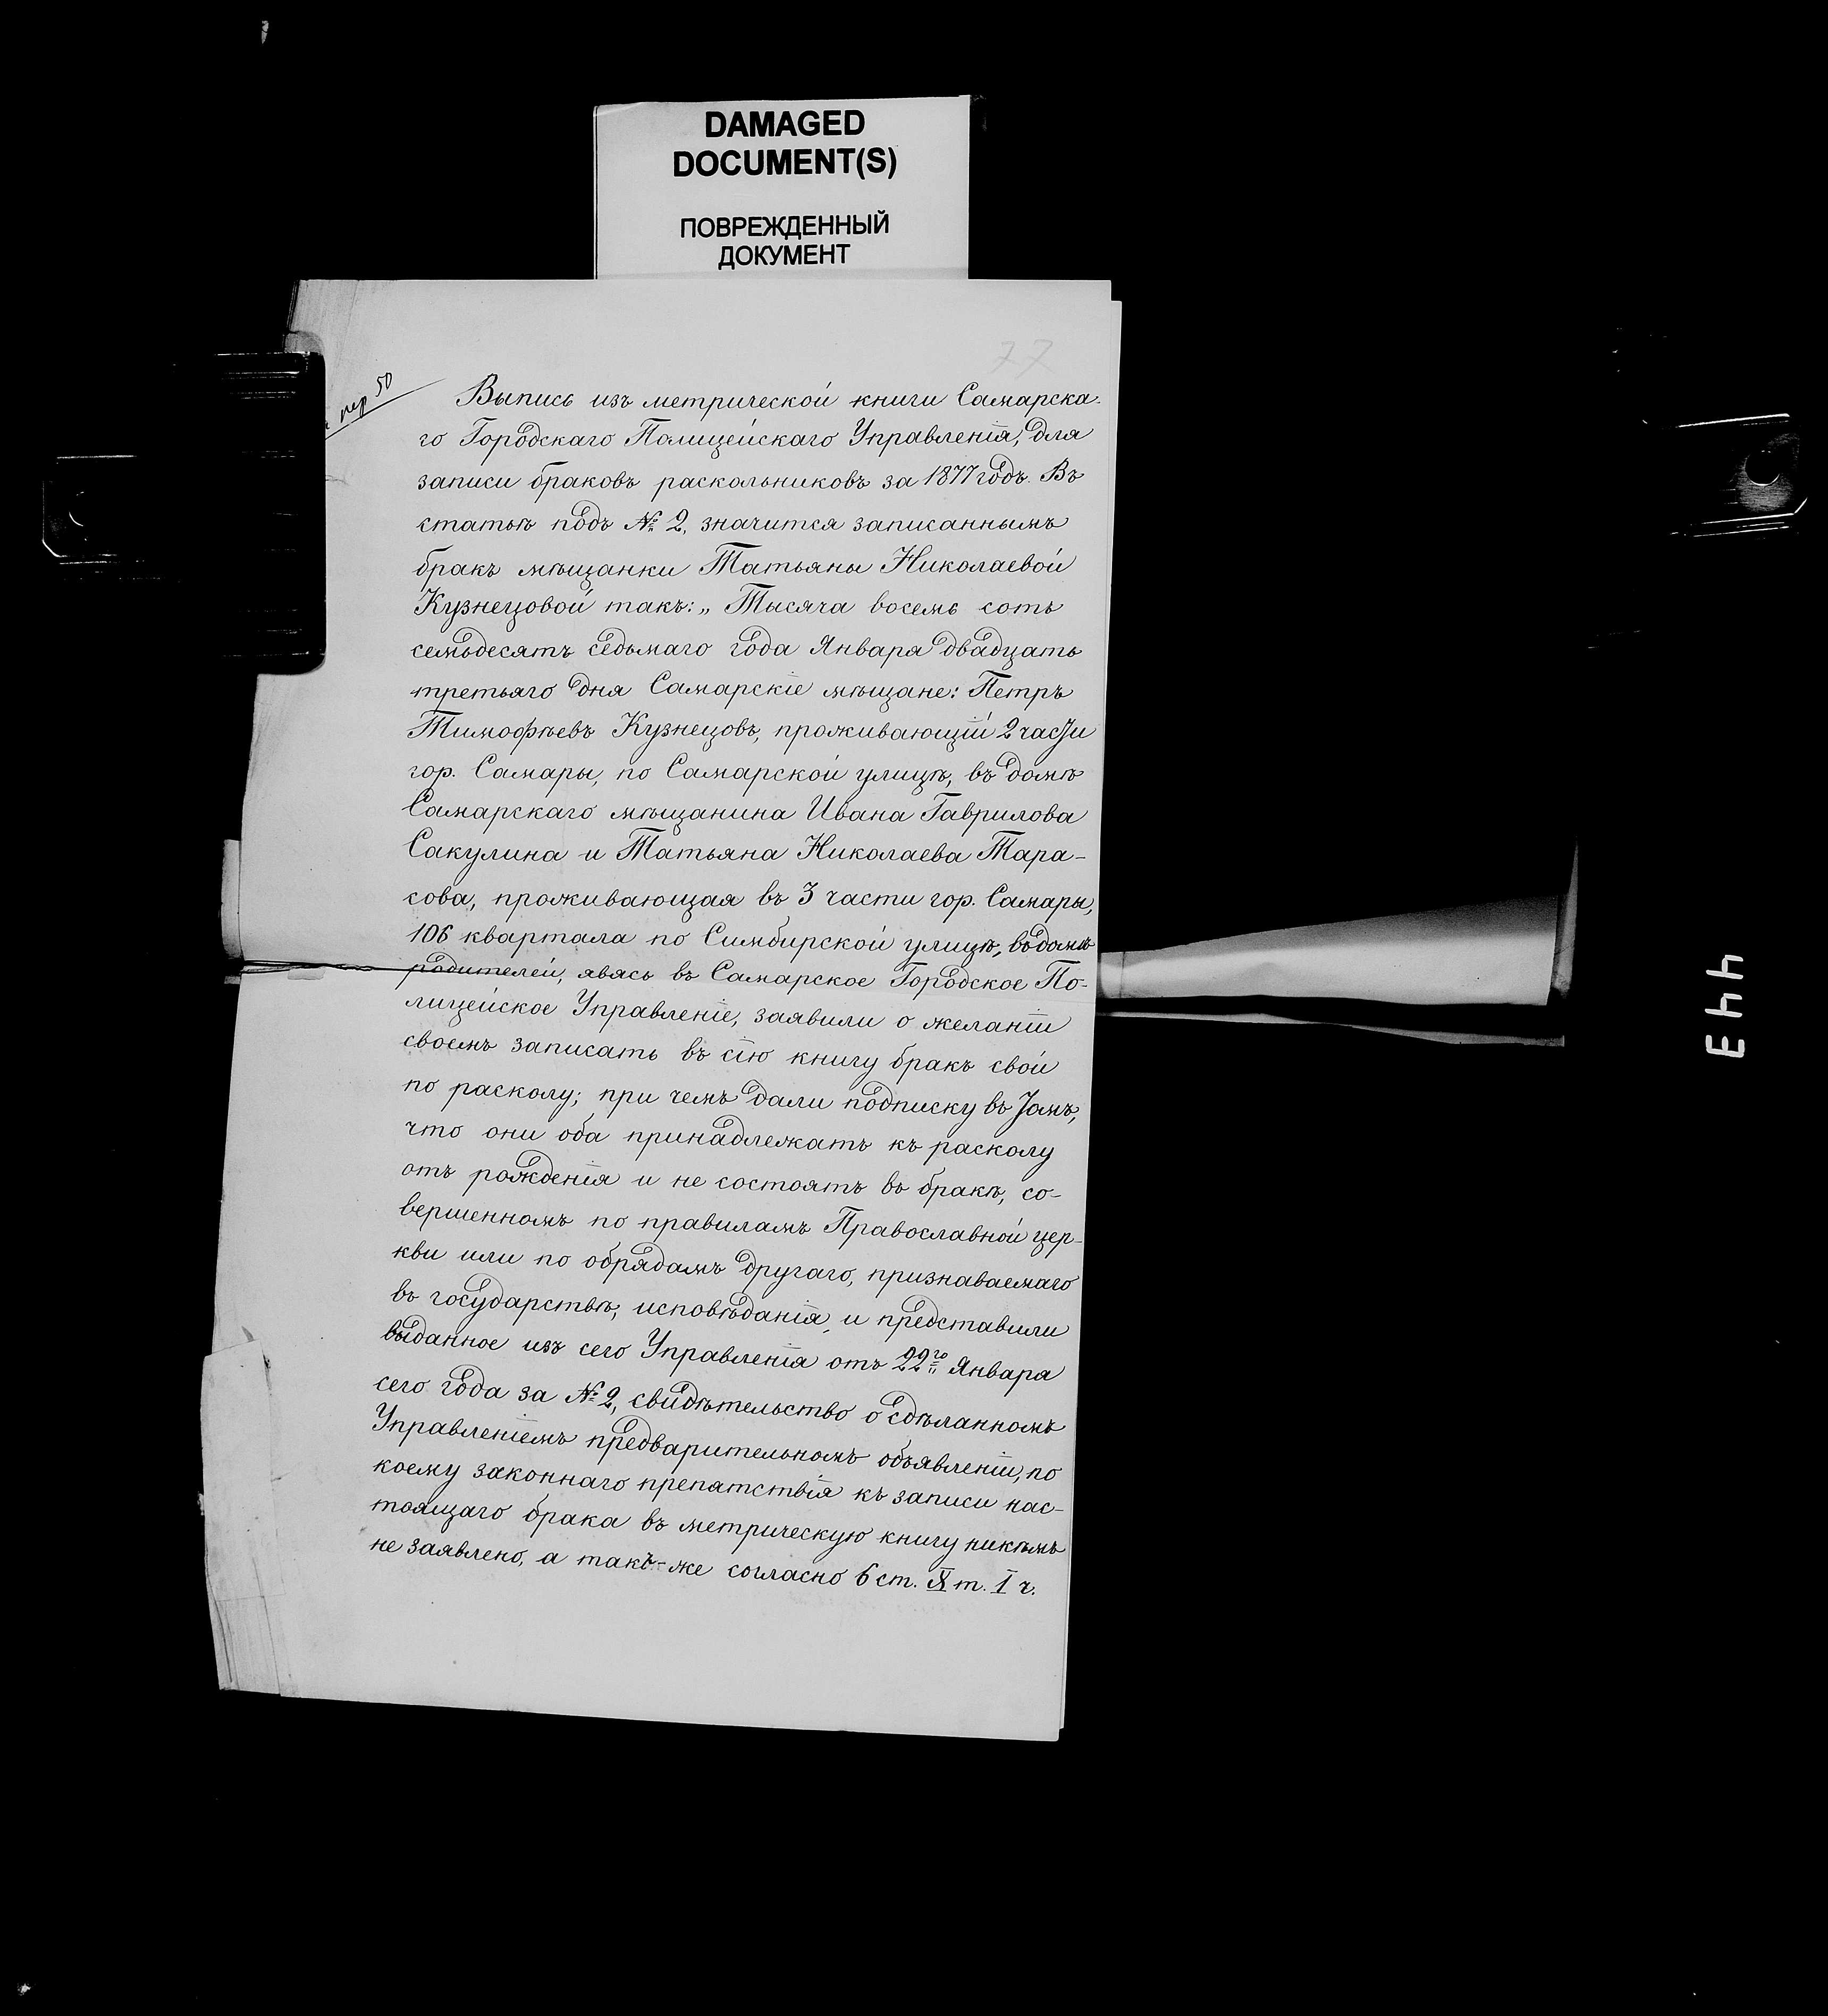 DAMAGED
DOCUMENT(S)
ПОВРЕЖДЕННЫЙ
ДОКУМЕНТ
77
пер 50
Выпись изъ метрической книги Самарска-
го Городскаго Полицейскаго Управленія, для
записи браковъ раскольниковъ за 1877 годъ. Въ
статьѣ подъ № 2, значится записаннымъ
бракъ мѣщанки Татьяны Николаевой
Кузнецовой такъ: „Тысяча восемь сотъ
семьдесятъ седьмаго года Января двадцать
третьяго дня Самарскіе мѣщане: Петръ
Тимофѣевъ Кузнецовъ, проживающій 2 части
гор. Самары, по Самарской улицѣ, въ домѣ
Самарскаго мѣщанина Ивана Гаврилова
Сакулина и Татьяна Николаева Тара-
сова, проживающая въ 3 части гор. Самары,
106 квартала по Симбирской улицѣ, въ домѣ
родителей, явясь въ Самарское Городское По-
лицейское Управленіе, заявили о желаніи
своемъ записать въ сію книгу бракъ свой
по расколу; при чемъ дали подписку въ томъ,
что они оба принадлежатъ къ расколу
отъ рожденія и не состоятъ въ бракѣ, со-
вершенномъ по правиламъ Православной цер-
кви или по обрядамъ другаго, признаваемаго
въ государствѣ, исповѣданія, и представили
выданное изъ сего Управленія отъ 22го Января
сего года за № 2, свидѣтельство о сдѣланномъ
Управленіемъ предварительномъ объявленіи, по
коему законнаго препятствія къ записи нас-
тоящаго брака въ метрическую книгу никѣмъ
не заявлено, а такъ-же согласно 6 ст. X т. I ч.
443